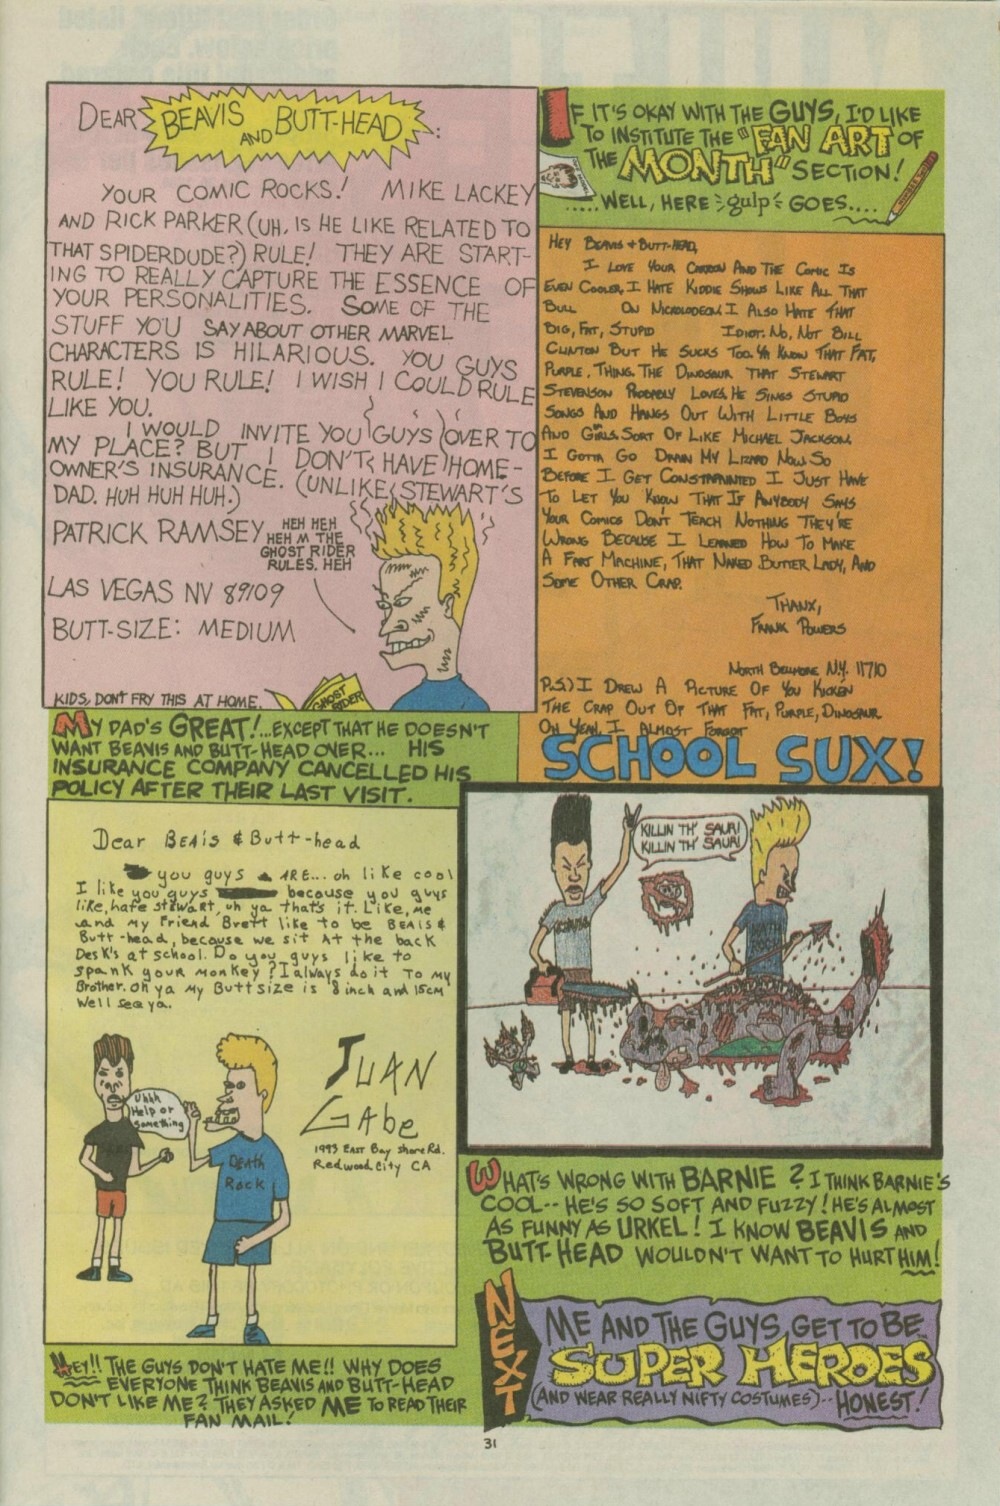 DEAR BEAVIS
AND BUTT-HEAD:
YOUR COMIC ROCKS! MIKE LACKEY
AND RICK PARKER (UH, IS HE LIKE RELATED TO
THAT SPIDERDUDE?) RULE! THEY ARE START-
ING TO REALLY CAPTURE THE ESSENCE OF
YOUR PERSONALITIES. SOME OF THE
STUFF YOU SAY ABOUT OTHER MARVEL
CHARACTERS IS HILARIOUS. YOU GUYS
RULE! YOU RULE! I WISH I COULD RULE
LIKE YOU.
I WOULD INVITE YOU GUYS OVER TO
MY PLACE? BUT I DON'T HAVE HOME-
OWNER'S INSURANCE. (UNLIKE STEWART'S
DAD. HUH HUH HUH.)
PATRICK RAMSEY
LAS VEGAS NV 89109
BUTT-SIZE: MEDIUM
HEH HEH
HEH M THE
GHOST RIDER
RULES. HEH
GHOST
RIDER
KIDS, DON'T FRY THIS AT HOME.
MY DAD'S GREAT!...EXCEPT THAT HE DOESN'T
WANT BEAVIS AND BUTT-HEAD OVER... HIS
INSURANCE COMPANY CANCELLED HIS
POLICY AFTER THEIR LAST VISIT.
Dear BEAiS & Butt-head
you guys ARE... oh like cool
I like you guys because you guys
like, hate stewart, uh ya that's it. Like, me
and my friend Brett like to be BEAIS &
Butt-head, because we sit At the back
Desk's at school. Do you guys like to
spank your monkey? I always do it To my
Brother. oh ya my Butt size is 8 inch and 15cm
Well see ya.
Uhhh
Help or
something
DEATH
Rock
JUAN
GAbe
1993 EAST Bay Shore Rd.
Redwood City CA
HEY!! THE GUYS DON'T HATE ME!! WHY DOES
EVERYONE THINK BEAVIS AND BUTT-HEAD
DON'T LIKE ME? THEY ASKED ME TO READ THEIR
FAN MAIL!
IF IT'S OKAY WITH THE GUYS, I'D LIKE
TO INSTITUTE THE "FAN ART OF
THE MONTH" SECTION!
.....WELL, HERE gulp GOES....
HEY BEAVIS + BUTT-HEAD,
I LOVE YOUR CARTOON AND THE COMIC IS
EVEN COOLER. I HATE KIDDIE SHOWS LIKE ALL THAT
BULL ON NICKOLODEON. I ALSO HATE THAT
BIG, FAT, STUPID IDIOT. NO, NOT BILL
CLINTON BUT HE SUCKS TOO. YA KNOW THAT FAT,
PURPLE, THING. THE DINOSAUR THAT STEWART
STEVENSON PROBABLY LOVES. HE SINGS STUPID
SONGS AND HANGS OUT WITH LITTLE BOYS
AND GIRLS. SORT OF LIKE MICHAEL JACKSON.
I GOTTA GO DRAIN MY LIZARD NOW. SO
BEFORE I GET CONSTAPAINTED I JUST HAVE
TO LET YOU KNOW THAT IF ANYBODY SAYS
YOUR COMICS DON'T TEACH NOTHING THEY'RE
WRONG BECAUSE I LEARNED HOW TO MAKE
A FART MACHINE, THAT NAKED BUTTER LADY, AND
SOME OTHER CRAP.
THANX,
FRANK POWERS
NORTH BELLMORE N.Y. 11710
P.S.) I DREW A PICTURE OF YOU KICKEN
THE CRAP OUT OF THAT FAT, PURPLE, DINOSAUR.
OH YEAH, I ALMOST FORGOT
SCHOOL SUX!
KILLIN TH' SAUR!
KILLIN TH' SAUR!
WHAT'S WRONG WITH BARNIE? I THINK BARNIE'S
COOL-- HE'S SO SOFT AND FUZZY! HE'S ALMOST
AS FUNNY AS URKEL! I KNOW BEAVIS AND
BUTT-HEAD WOULDN'T WANT TO HURT HIM!
NEXT
ME AND THE GUYS GET TO BE
SUPER HEROES
(AND WEAR REALLY NIFTY COSTUMES)--HONEST!
31